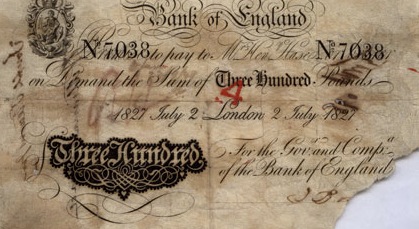 Bank of England
No 7038 to pay to Mr Hen Hase No 7038
on Demand the Sum of Three Hundred Pounds
1827 July 2 London 2 July 1827
Three Hundred
For the Govr and Compa
of the Bank of England